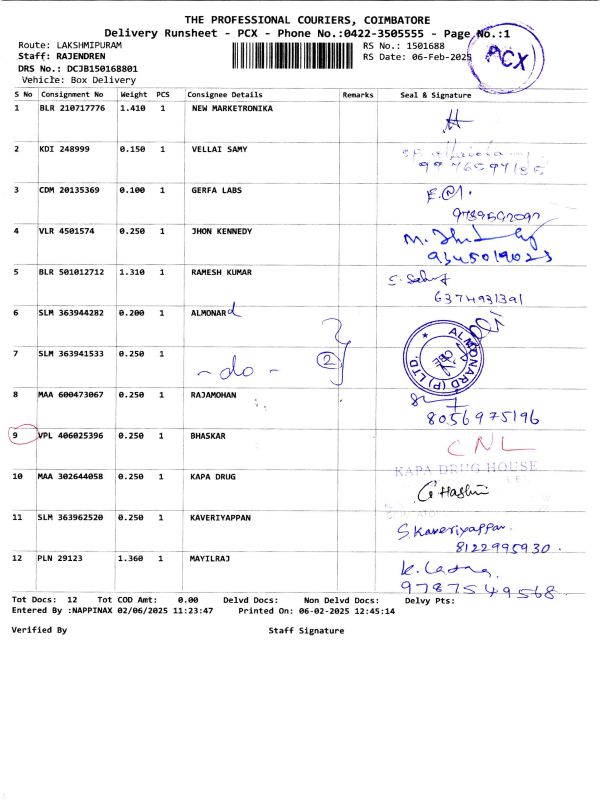 THE PROFESSIONAL COURIERS, COIMBATORE
Delivery Runsheet - PCX - Phone No.:0422-3505555 - Page No.:1
Route: LAKSHMIPURAM
RS No.: 1501688
Staff: RAJENDREN
RS Date: 06-Feb-2025
PCX
DRS No.: DCJB150168801
Vehicle: Box Delivery
S No Consignment No Weight PCS Consignee Details Remarks Seal & Signature
1 BLR 210717776 1.410 1 NEW MARKETRONIKA
2 KDI 248999 0.150 1 VELLAI SAMY
3 CDM 20135369 0.100 1 GERFA LABS
4 VLR 4501574 0.250 1 JHON KENNEDY
9345019023
5 BLR 501012712 1.310 1 RAMESH KUMAR
6374931391
6 SLM 363944282 0.200 1 ALMONARd
ALMONARD (P) LTD.
CBE
7 SLM 363941533 0.250 1 - do - 2
8 MAA 600473067 0.250 1 RAJAMOHAN
8056975196
9 VPL 406025396 0.250 1 BHASKAR CNL
10 MAA 302644058 0.250 1 KAPA DRUG
KAPA DRUG HOUSE
G Hashni
11 SLM 363962520 0.250 1 KAVERIYAPPAN
S. Kaveriyappan.
8122995930.
12 PLN 29123 1.360 1 MAYILRAJ
9787549568.
Tot Docs: 12 Tot COD Amt: 0.00 Delvd Docs: Non Delvd Docs: Delvy Pts:
Entered By :NAPPINAX 02/06/2025 11:23:47 Printed On: 06-02-2025 12:45:14
Verified By Staff Signature